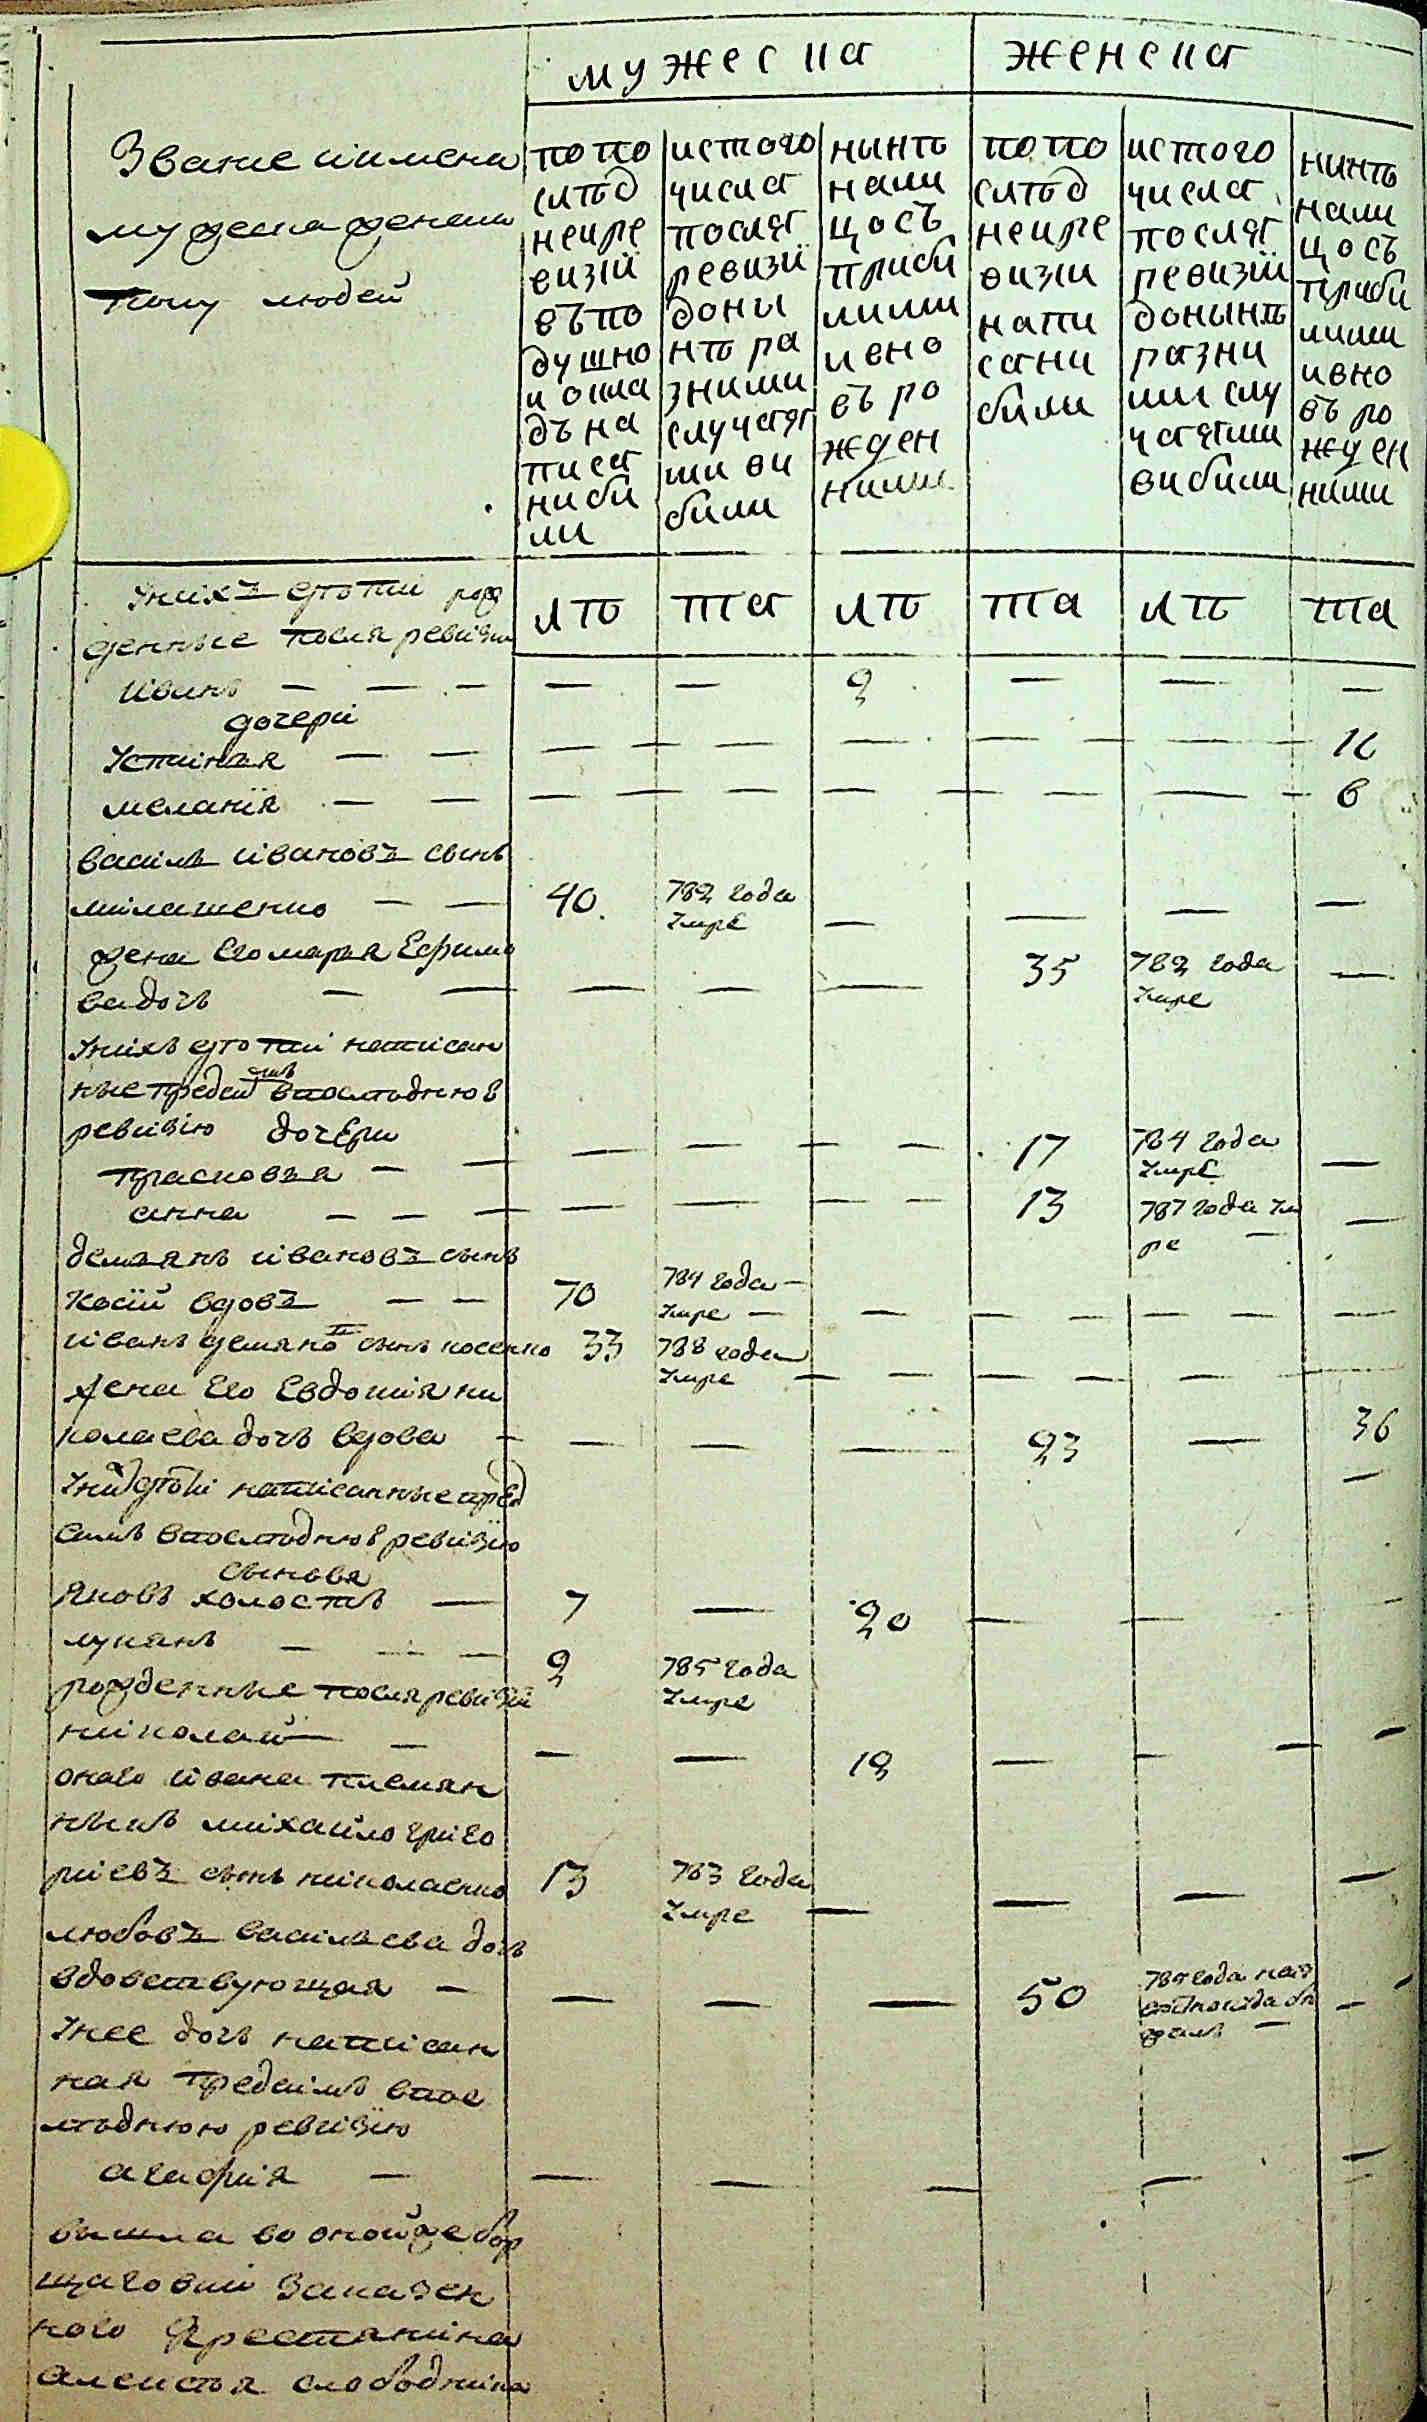 мужеска женска
Звание и имена
мужеска женска
полу людей
по по
слѣд
не и ре
визіи
въ по
душно
и окла
дъ на
писа
ни би
ли
ис того
числа
посля
ревизіи
до ны
нѣ ра
зними
случая
ми ви
били
нынѣ
нали
цось
приби
лими
и вно
въ ро
жден
ними
по по
слѣд
не и ре
визи
напи
сани
били
ис того
числа
посля
ревизіи
до нынѣ
разни
ми слу
чаями
вибили
нинѣ
нали
цось
приби
лими
и вно
въ ро
жден
ними
У нихъ дѣти рож
денные посля ревизіи
лѣ та лѣ та лѣ та
иванъ — — — — — 2 — — —
дочери
Устиния — — — — — — — 16
меланія — — — — — — — 6
василь ивановъ сынъ
милашенко — — 40 782 года умре — — — —
жена его марья Ефимо
ва дочь — — — — — 35 782 года умре —
У нихъ дѣти написан
ные пред симъ в послѣднюю
ревизію дочери
прасковья — — — — — — 17 784 года умре —
анна — — — — — — 13 787 года ум ре — —
демьянъ ивановъ сынъ
косій вдовъ — — 70 784 года — умре — — — — —
иванъ демяновъ сынъ косенко 33 788 года умре — — — — —
жена его Евдокия ни
колаева дочь вдова — — — — 23 — 36
У ней дѣти написанные пред —
симъ в послѣднюю ревизію
сыновя
яковъ холостъ — 7 — 20 — — —
лукянъ — — — 2 785 года умре
рожденные посля ревизіи
николай — — — — 12 — — — —
онаго ивана племян
никъ михайло григо
риевъ сынъ николаенко 13 783 года умре — — — —
любовъ васильева дочь
вдовствующая — — — — 50 784 года —
У нее дочь написан
ная пред симъ в пос
лѣднюю ревизію
агафия — — — — — —
вышла во оной же бор
щаговки за казен
ного крестянина
алексѣя слободника